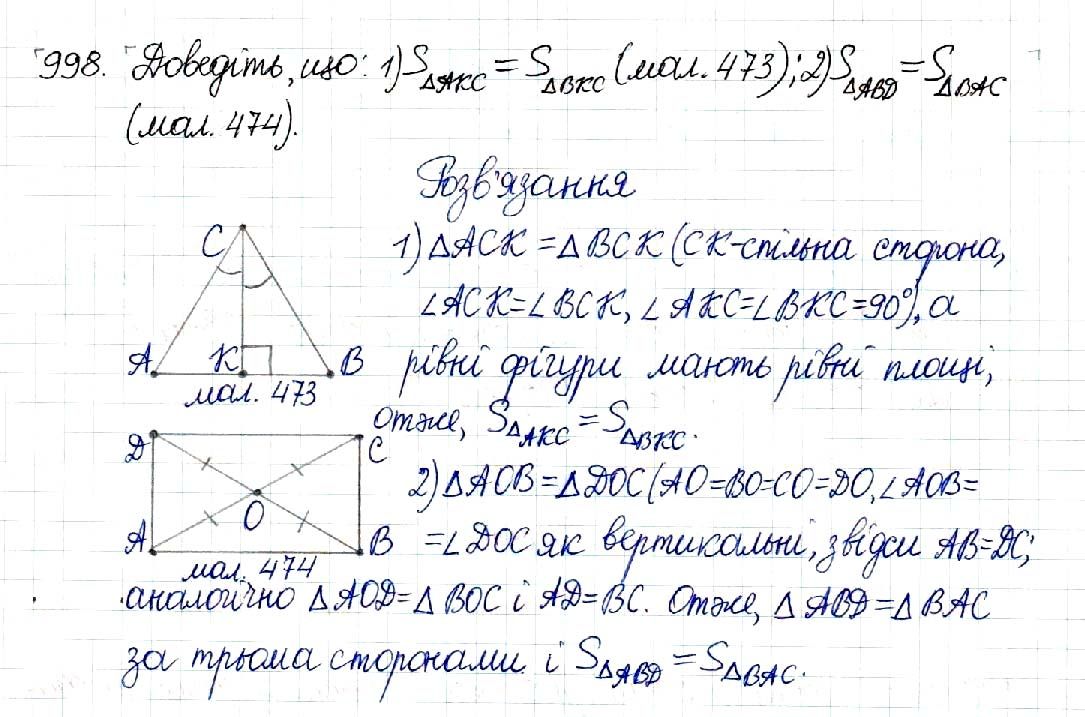 998. Доведіть, що: 1) S△AKC = S△BKC (мал. 473); 2) S△ABD = S△BAC
(мал. 474).
Розв'язання
C
A K B
мал. 473
1) △ACK = △BCK (CK-спільна сторона,
∠ACK=∠BCK, ∠AKC=∠BKC=90°), а
рівні фігури мають рівні площі,
отже, S△AKC = S△BKC.
D C
O
A B
мал. 474
2) △AOB=△DOC (AO=BO=CO=DO, ∠AOB=
=∠DOC як вертикальні, звідси AB=DC;
аналогічно △AOD=△BOC і AD=BC. Отже, △ABD=△BAC
за трьома сторонами і S△ABD = S△BAC.